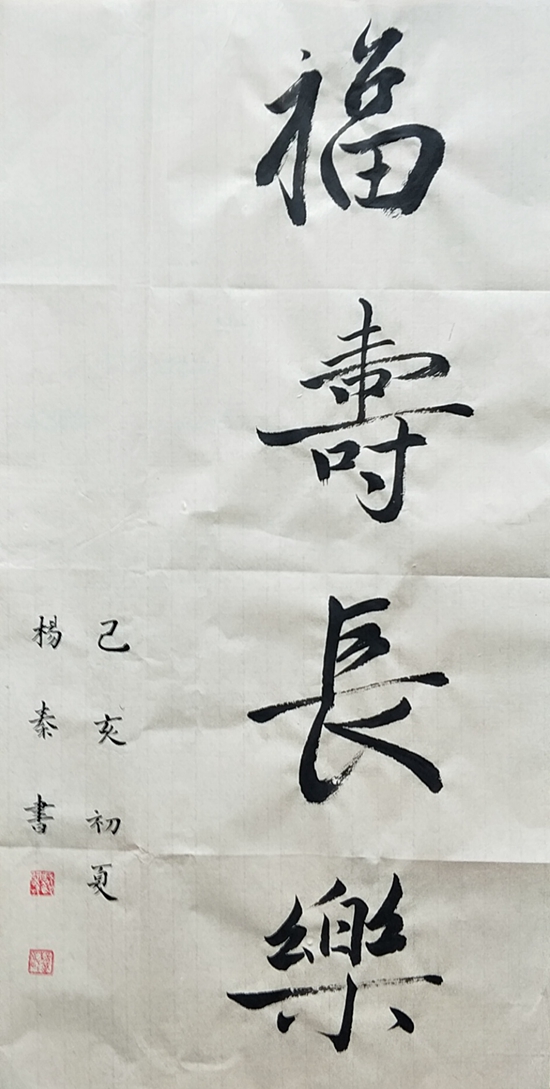 福壽長樂
己亥初夏
楊秦書